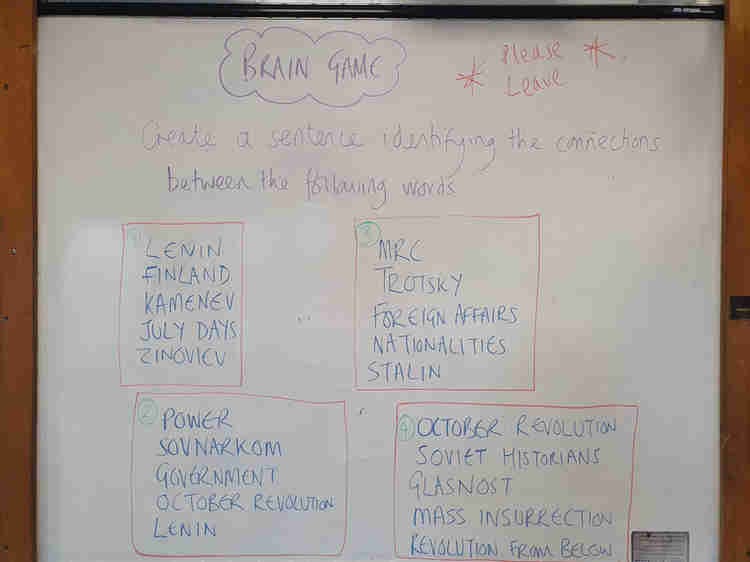 BRAIN GAME
* Please *
Leave
Create a sentence identifying the connections
between the following words
1
LENIN
FINLAND
KAMENEV
JULY DAYS
ZINOVIEV
3
MRC
TROTSKY
FOREIGN AFFAIRS
NATIONALITIES
STALIN
2 POWER
SOVNARKOM
GOVERNMENT
OCTOBER REVOLUTION
LENIN
4 OCTOBER REVOLUTION
SOVIET HISTORIANS
GLASNOST
MASS INSURRECTION
REVOLUTION FROM BELOW